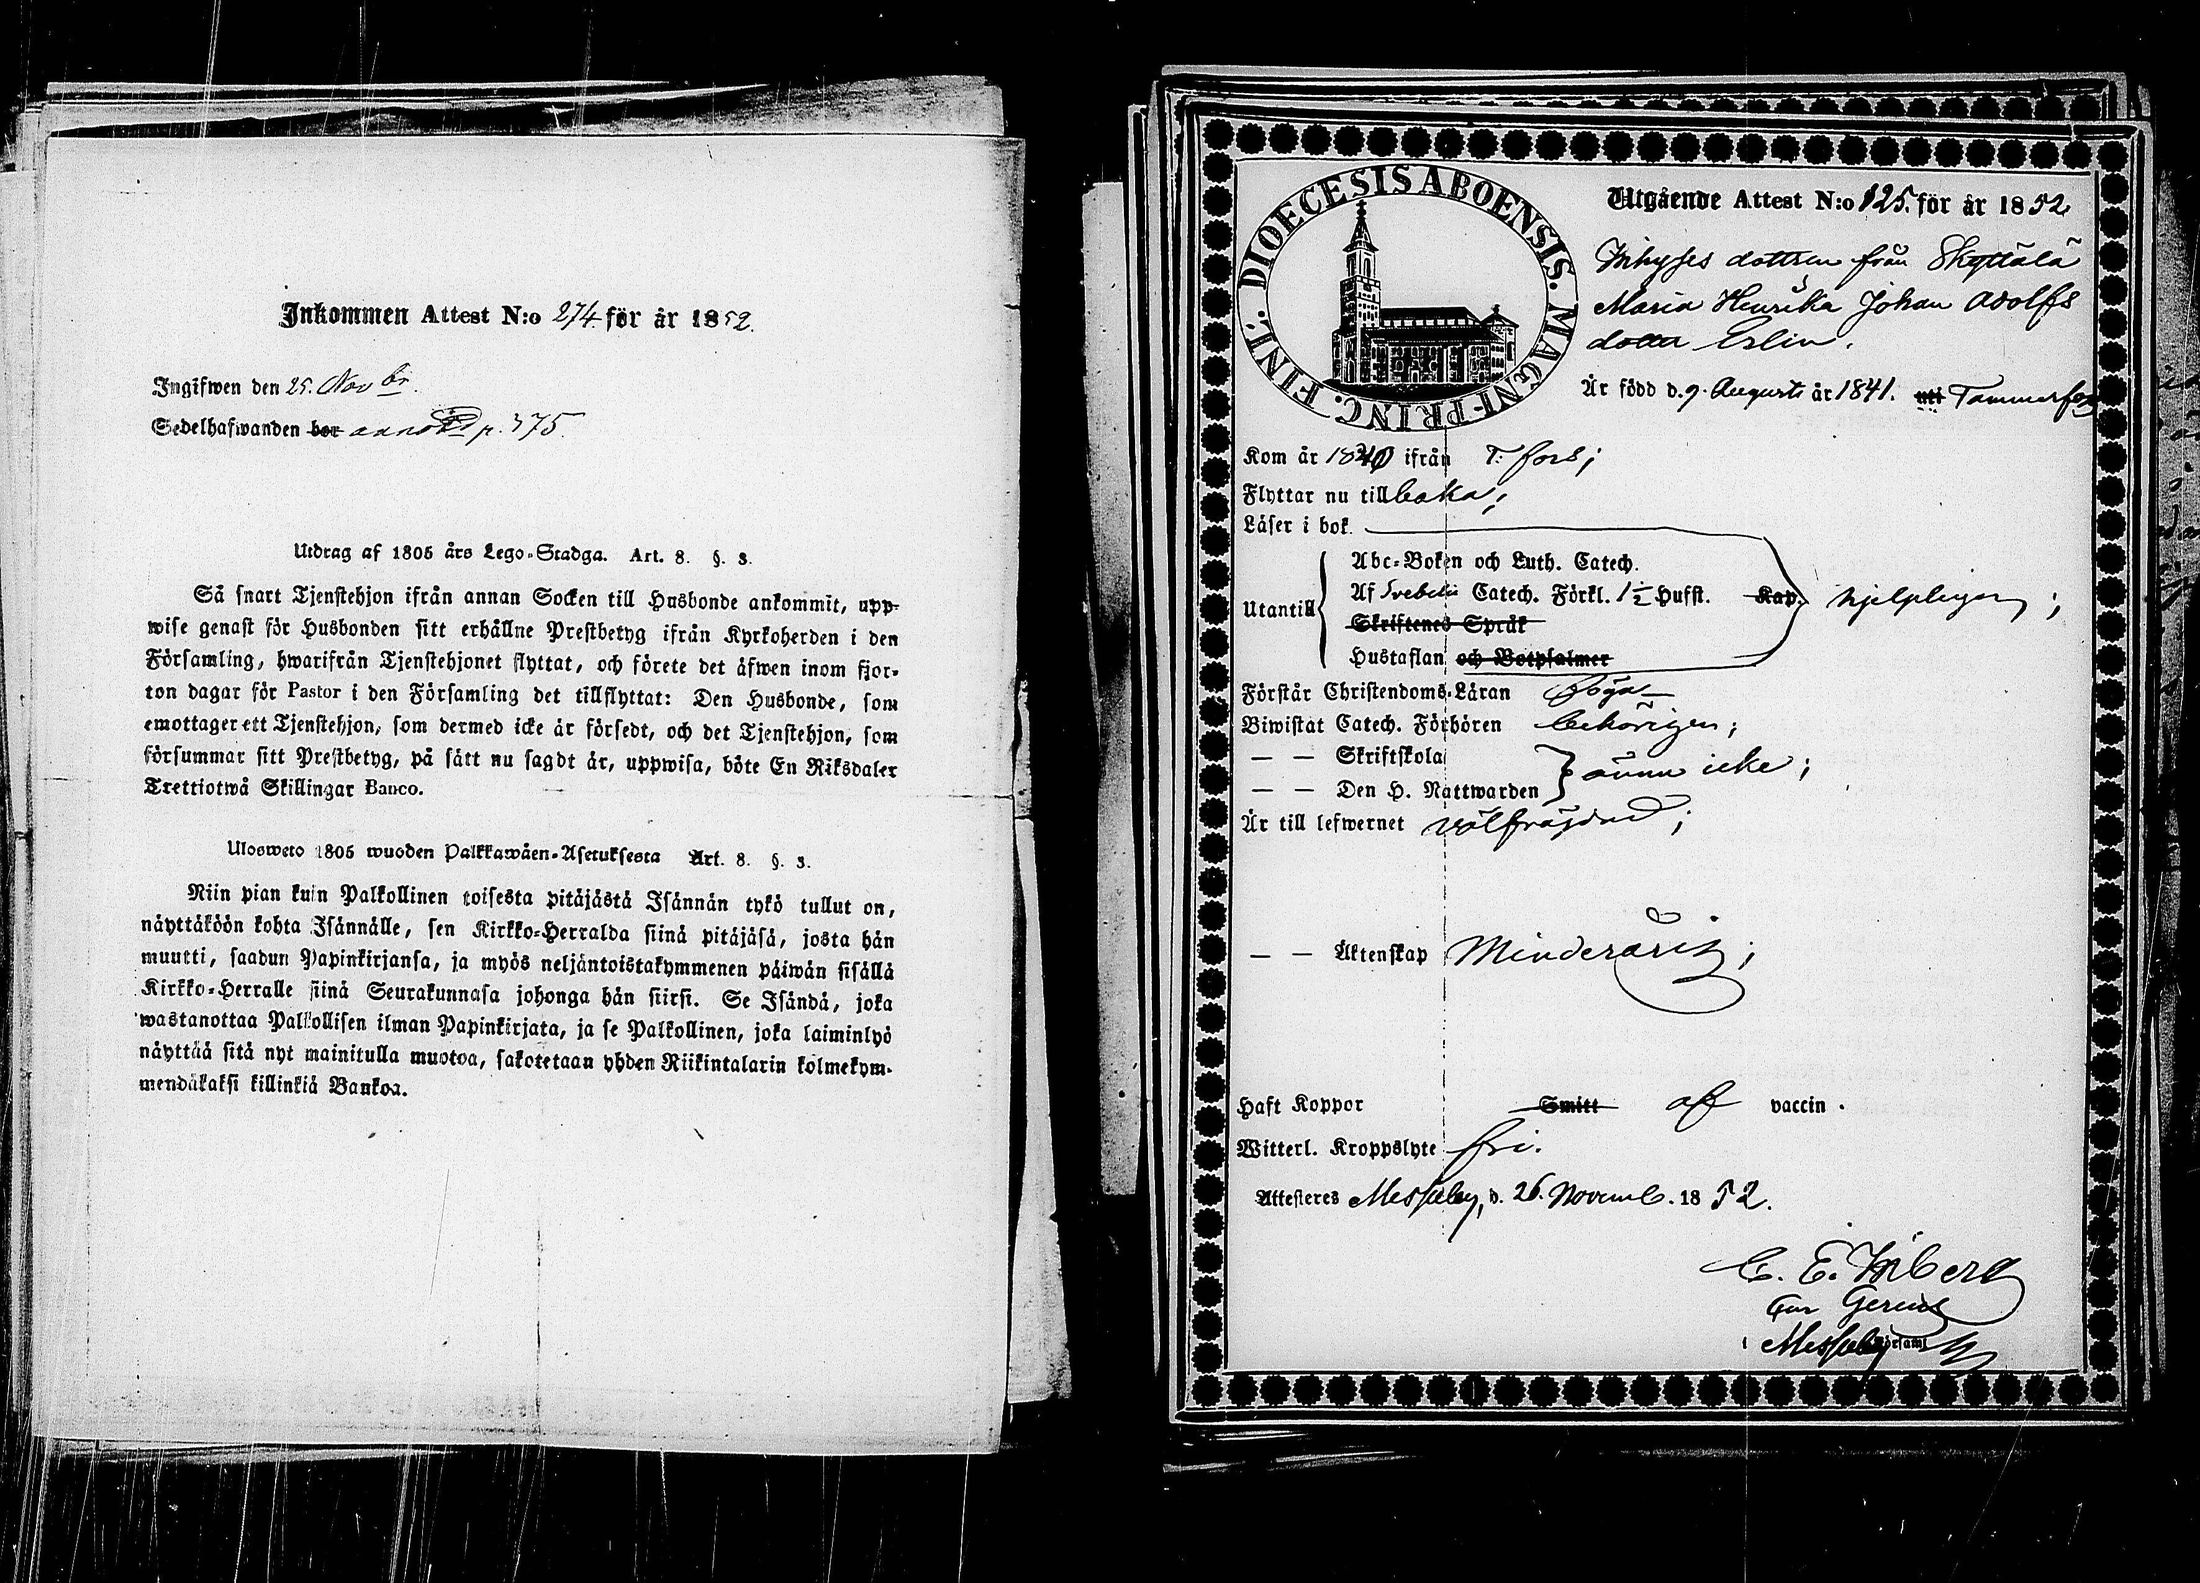 Inkommen Attest N:o 274 för år 1852.
Ingifwen den 25. Novbr.
Sedelhafwanden bor p. 375.
Utdrag af 1805 års Lego-Stadga. Art. 8. §. 3.
Så snart Tjenstehjon ifrån annan Socken till Husbonde ankommit, upp-
wise genast för Husbonden sitt erhållne Prestbetyg ifrån Kyrkoherden i den
Församling, hwarifrån Tjenstehjonet flyttat, och förete det äfwen inom fjor-
ton dagar för Pastor i den Församling det tillflyttat: Den Husbonde, som
emottager ett Tjenstehjon, som dermed icke är försedt, och det Tjenstehjon, som
försummar sitt Prestbetyg, på sätt nu sagdt är, uppwisa, böte En Riksdaler
Trettiotwå Skillingar Banco.
Ulosweto 1805 wuoden Palkkawäen-Asetuksesta Art. 8. §. 3.
Niin pian kuin Palkollinen toisesta pitäjästä Isännän tykö tullut on,
näyttäköön kohta Isännälle, sen Kirkko-Herralda siinä pitäjäsä, josta hän
muutti, saadun Papinkirjansa, ja myös neljäntoistakymmenen päiwän sisällä
Kirkko-Herralle siinä Seurakunnasa johonga hän siirsi. Se Isändä, joka
wastanottaa Palkollisen ilman Papinkirjata, ja se Palkollinen, joka laiminlyö
näyttää sitä nyt mainitulla muotoa, sakotetaan yhden Riikintalarin kolmekym-
mendäkaksi killinkiä Bankoa.
DIOECESIS ABOENSIS. MAGNI-PRINC. FINL.
Utgående Attest N:o 125. för år 1852
Inhyses dottren från Skyttälä
Maria Henrika Johan Adolfs
dotter Erlin.
Är född d. 9. Augusti år 1841. uti Tammerfors
Kom år 1840 ifrån T:fors;
Flyttar nu tillbaka;
Läser i bok
Utantill
Abc-Boken och Luth. Catech.
Af Svebelii Catech. Förkl. 1 1/2 Hufst. Kap. hjelpligen;
Skriftenes Språk
Hustaflan och Botpsalmer
Förstår Christendoms-Läran föga
Biwistat Catech. Förhören behörigen;
— — Skriftskola
ännu icke;
— — Den H. Nattwarden
Är till lefwernet välfräjdad;
— — Äktenskap Minderårig;
Haft Koppor Smitt af vaccin.
Witterl. Kroppslyte fri.
Attesteras Messuby, d. 26. Novemb. 1852.
C. E. Inberg
Gerens
i Messuby Församl.